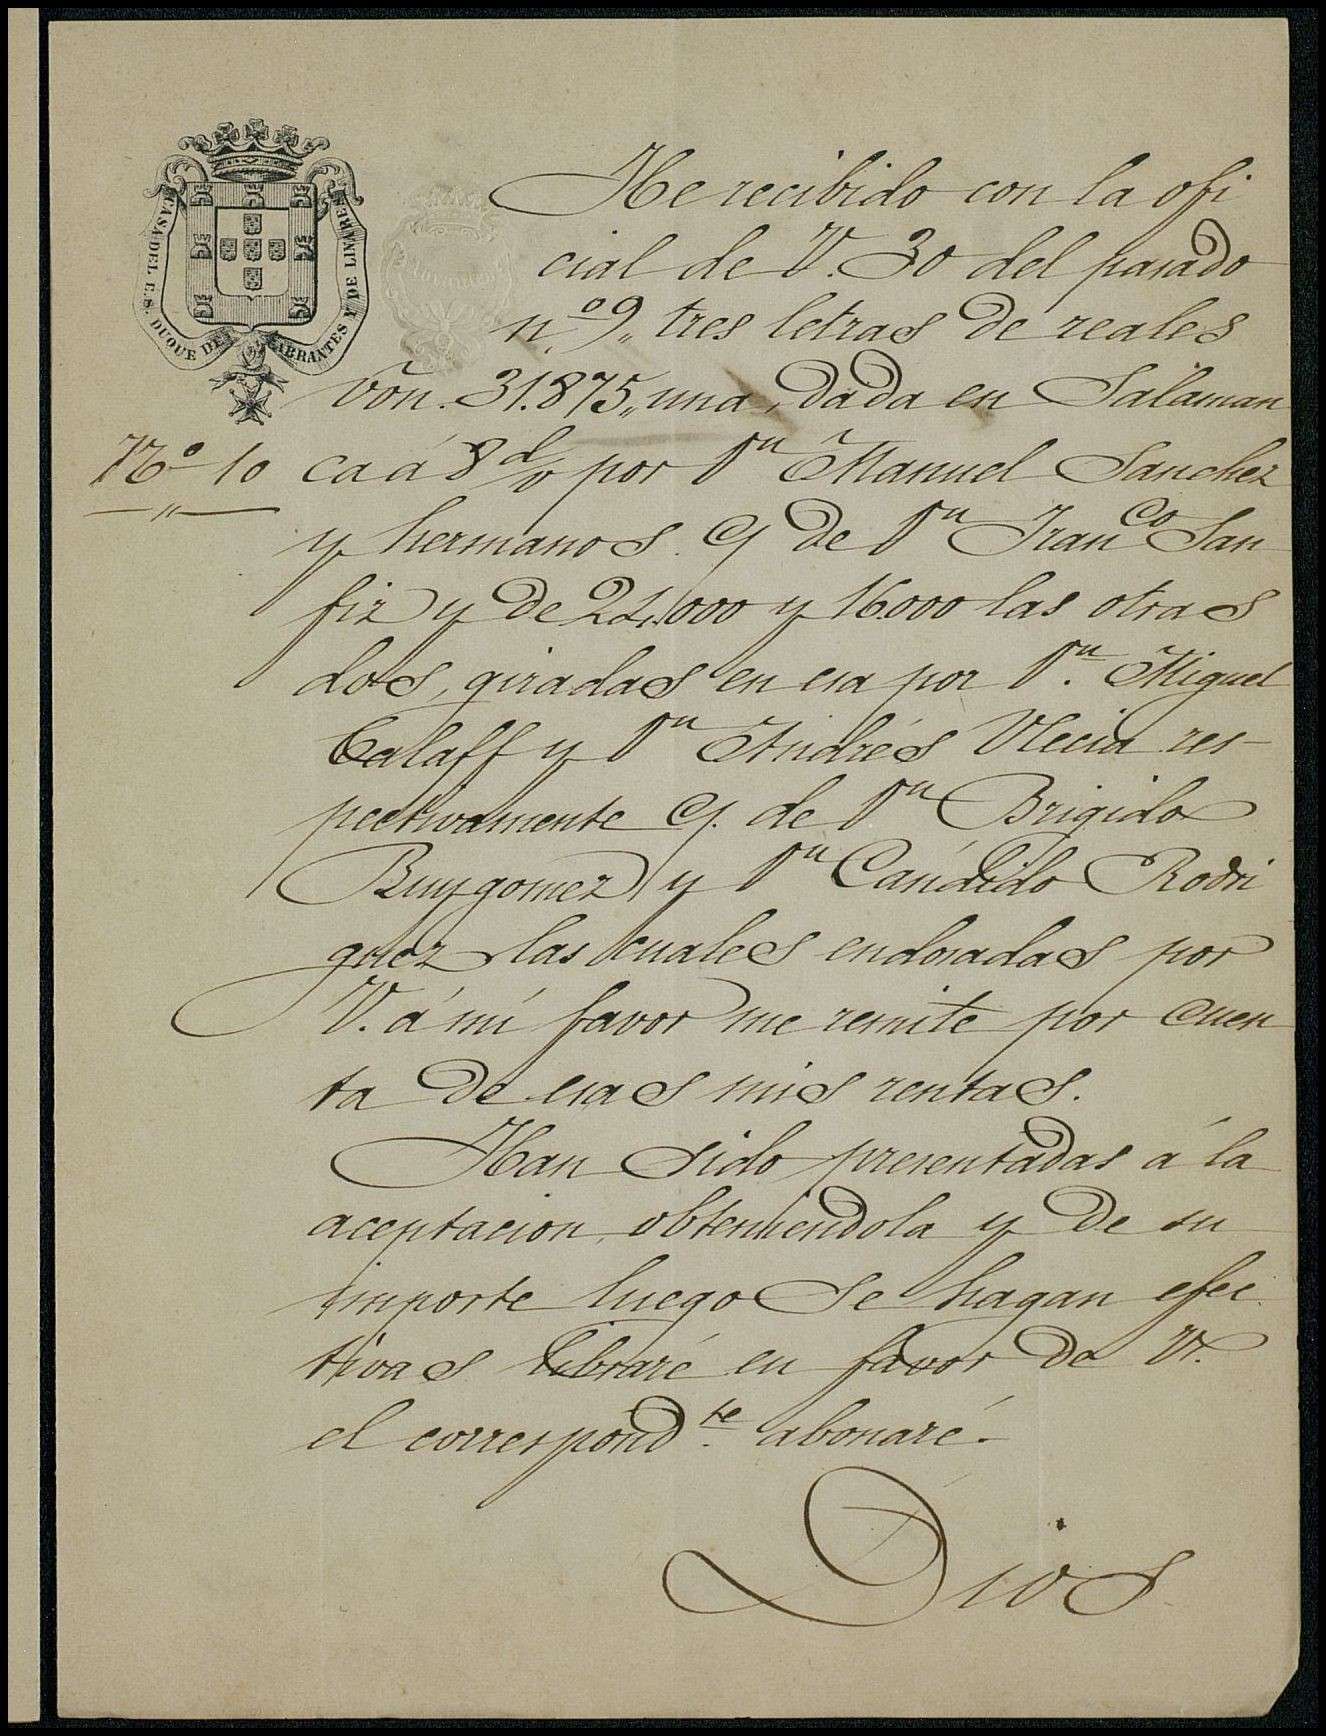 CASA DEL E.S. DUQUE DE ABRANTES Y DE LINARES
He recibido con la ofi
cial de V. 30 del pasado
n.º 9,, tres letras de reales
vōn. 31.875,, una, dada en Salaman
Nº 10
ca á 8 d/v por Dn Manuel Sanchez
y hermanos c/ de Dn Franco San
fiz y de 24,000 y 16.000 las otras
dos, giradas en esa por Dn. Miguel
Calaff y Dn Andrés Vlecia res-
pectivamente c/. de Dn Brigido
Ruygomez y Dn Cándido Rodri
guez las cuales endosadas por
V. á mi favor me remite por cuen
ta de esas mis rentas.
Han sido presentadas á la
aceptacion, obteniendola y de su
importe luego se hagan efec
tivas libraré en favor de V.
el correspond.te abonaré.
Dios